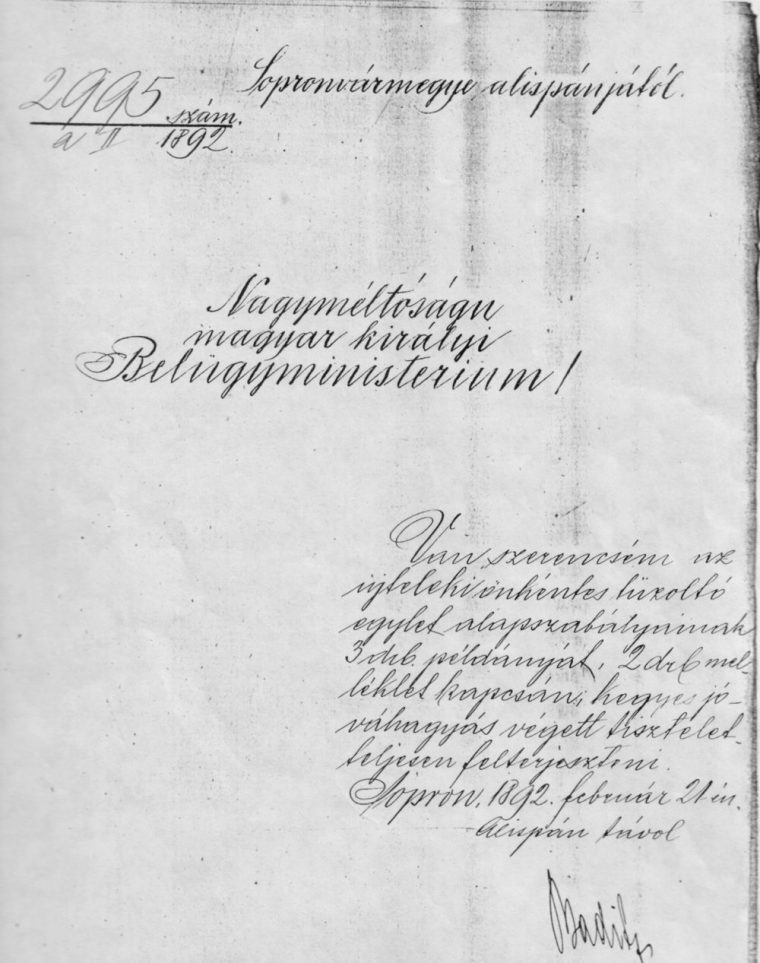 Sopronvármegye alispánjától.
2995 szám.
a II 1892.
Nagyméltóságu
magyar királyi
Belügyministerium!
Van szerencsém az
ujteleki önkéntes tüzoltó
egylet alapszabályainak
3 drb. példányját, 2 drb mel-
léklet kapcsán, kegyes jó-
váhagyás végett tisztelet-
teljesen felterjeszteni.
Sopron, 1892. február 21 én.
Alispán távol
Baditz